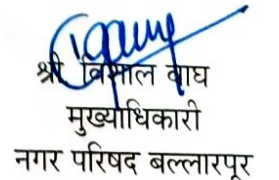 श्री विशाल वाघ
मुख्याधिकारी
नगर परिषद बल्लारपूर